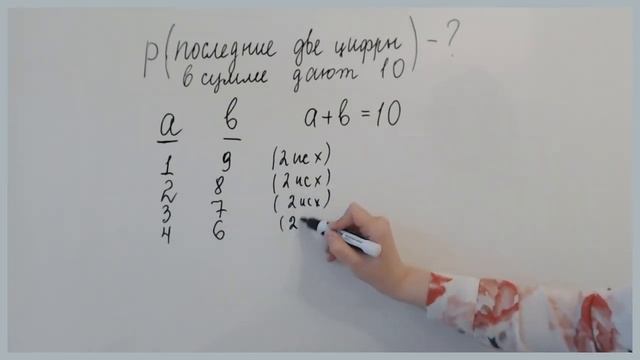 P(последние две цифры
в сумме дают 10) - ?
a в a + в = 10
1 9 (2 исх)
2 8 (2 исх)
3 7 (2 исх)
4 6 (2